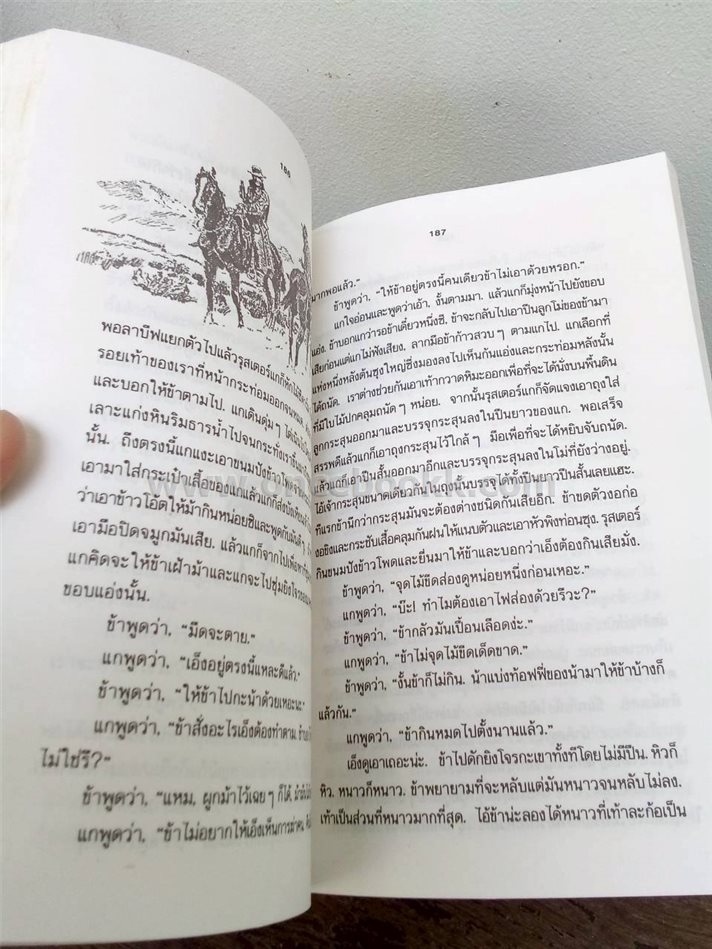 186
พอลาบีฟแยกตัวไปแล้วรุสเตอร์แกก็หัก
รอยเท้าของเราที่หน้ากระท่อมออกจน
และบอกให้ข้าตามไป. แกเดินดุ่มๆ
เลาะแก่งหินริมธารน้ำไปจนกระทั่งเรา
นั้น. ถึงตรงนี้แกแงะเอาขนมปังข้าวโพด
เอามาใส่กระเป๋าเสื้อของแกแล้วแกก็ส่ง
ว่าเอาข้าวโอ๊ตให้ม้ากินหน่อยซิและพูดกับมันดีๆ
เอามือปิดจมูกมันเสีย. แล้วแกก็จากไป
แกคิดจะให้ข้าเฝ้าม้าและแกจะไปซุ่มยิงโจร
ขอบแอ่งนั้น.
ข้าพูดว่า, “มืดจะตาย.”
แกพูดว่า, “เอ็งอยู่ตรงนี้แหละดีแล้ว.”
ข้าพูดว่า, “ให้ข้าไปกะน้าด้วยเหอะนะ.”
แกพูดว่า, “ข้าสั่งอะไรเอ็งต้องทำตาม
ไม่ใช่รึ?”
ข้าพูดว่า, “แหม, ผูกม้าไว้เฉยๆ ก็ได้
แกพูดว่า, “ข้าไม่อยากให้เอ็งเห็นการฆ่าคน.
187
มากพอแล้ว.”
ข้าพูดว่า, “ให้ข้าอยู่ตรงนี้คนเดียวข้าไม่เอาด้วยหรอก.”
แกใจอ่อนและพูดว่าเอ้า. งั้นตามมา. แล้วแกก็มุ่งหน้าไปยังขอบ
แอ่ง. ข้าบอกแกว่ารอข้าเดี๋ยวหนึ่งซิ. ข้าจะกลับไปเอาปืนลูกโม่ของข้ามา
เสียก่อนแต่แกไม่ฟังเสียง. ลากมือข้าก้าวสวบๆ ตามแกไป. แกเลือกที่
แห่งหนึ่งหลังต้นซุงใหญ่ซึ่งมองลงไปเห็นก้นแอ่งและกระท่อมหลังนั้น
ได้ถนัด. เราต่างช่วยกันเอาเท้ากวาดหิมะออกเพื่อที่จะได้นั่งบนพื้นดิน
ที่มีใบไม้ปกคลุมถนัดๆ หน่อย. จากนั้นรุสเตอร์แกก็จัดแจงเอาถุงใส่
ลูกกระสุนออกมาและบรรจุกระสุนลงในปืนยาวของแก. พอเสร็จ
สรรพดีแล้วแกก็เอาถุงกระสุนไว้ใกล้ๆ มือเพื่อที่จะได้หยิบจับถนัด.
แล้วแกก็เอาปืนสั้นออกมาอีกและบรรจุกระสุนลงในโม่ที่ยังว่างอยู่.
ไอ้เจ้ากระสุนขนาดเดียวกันนั้นบรรจุได้ทั้งปืนยาวปืนสั้นเลยแฮะ.
ทีแรกข้านึกว่ากระสุนมันจะต้องต่างชนิดกันเสียอีก. ข้าขดตัวงอก่อ
งอขิงและกระชับเสื้อคลุมกันฝนให้แนบตัวและเอาหัวพิงท่อนซุง. รุสเตอร์
กินขนมปังข้าวโพดและยื่นมาให้ข้าและบอกว่าเอ็งต้องกินเสียมั่ง.
ข้าพูดว่า, “จุดไม้ขีดส่องดูหน่อยหนึ่งก่อนเหอะ.”
แกพูดว่า, “บ๊ะ! ทำไมต้องเอาไฟส่องด้วยรึวะ?”
ข้าพูดว่า, “ข้ากลัวมันเปื้อนเลือดง่ะ.”
แกพูดว่า, “ข้าไม่จุดไม้ขีดเด็ดขาด.”
ข้าพูดว่า, “งั้นข้าก็ไม่กิน. น้าแบ่งท้อฟฟี่ของน้ามาให้ข้าบ้างก็
แล้วกัน.”
แกพูดว่า, “ข้ากินหมดไปตั้งนานแล้ว.”
เอ็งดูเอาเถอะน่ะ. ข้าไปดักยิงโจรกะเขาทั้งทีโดยไม่มีปืน. หิวก็
หิว. หนาวก็หนาว. ข้าพยายามที่จะหลับแต่มันหนาวจนหลับไม่ลง.
เท้าเป็นส่วนที่หนาวมากที่สุด. ไอ้ข้าน่ะลองได้หนาวที่เท้าละก้อเป็น